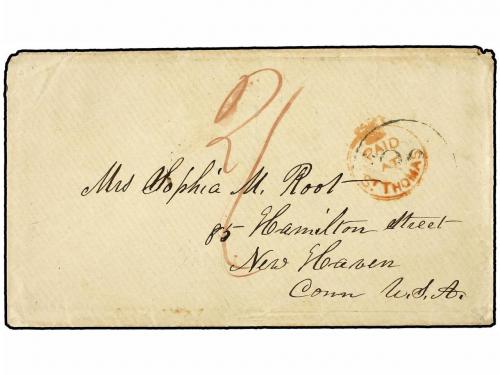 2/
PAID
AT
ST THOMAS
Mrs Sophia M. Root
85 Hamilton Street
New Haven
Conn U.S.A.